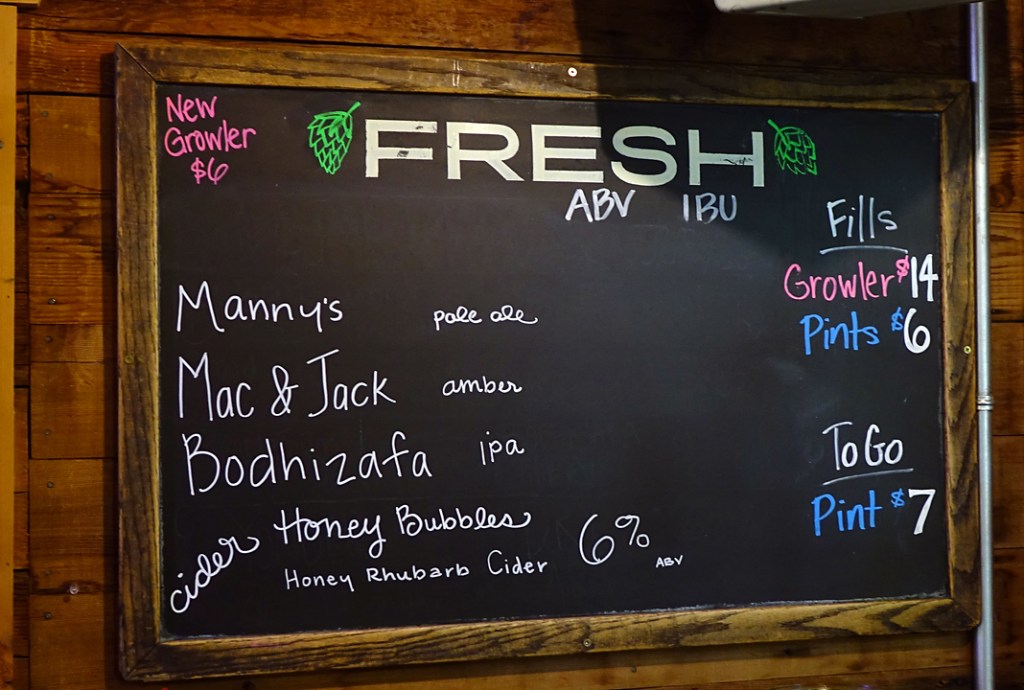 New
Growler
$6
FRESH
ABV IBU
Fills
Growler $14
Pints $6
Manny's pale ale
Mac & Jack amber
Bodhizafa ipa
To Go
Pint $7
cider
Honey Bubbles
Honey Rhubarb Cider
6%
ABV